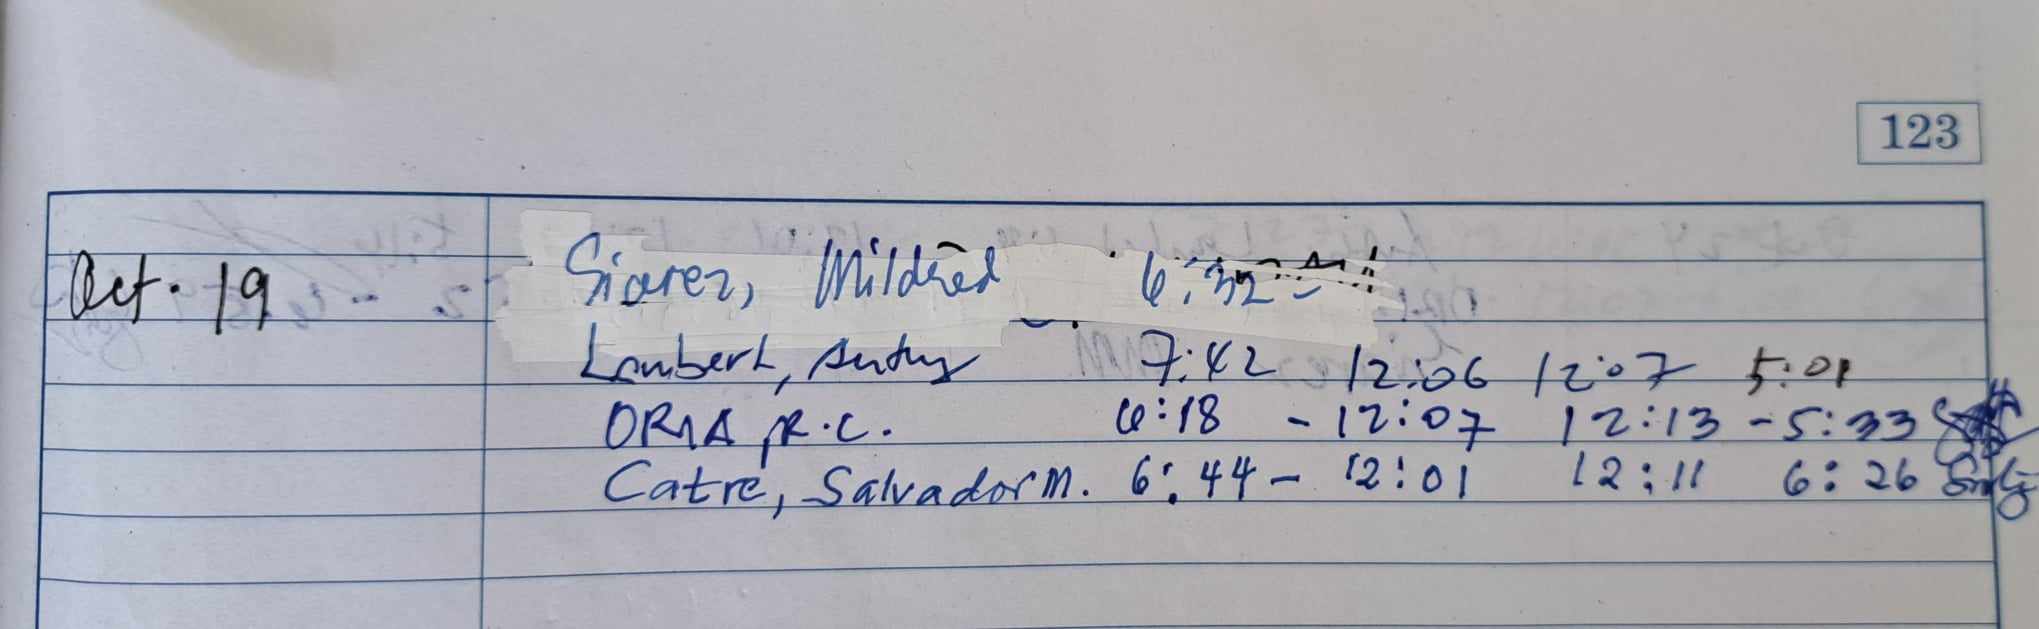 123
Oct. 19 Siarez, Mildred 6:32 -
Lambert, 7:42 12:06 12:07 5:01
ORMA, R.C. 6:18 - 12:07 12:13 - 5:33
Catre, Salvador M. 6:44 - 12:01 12:11 6:26